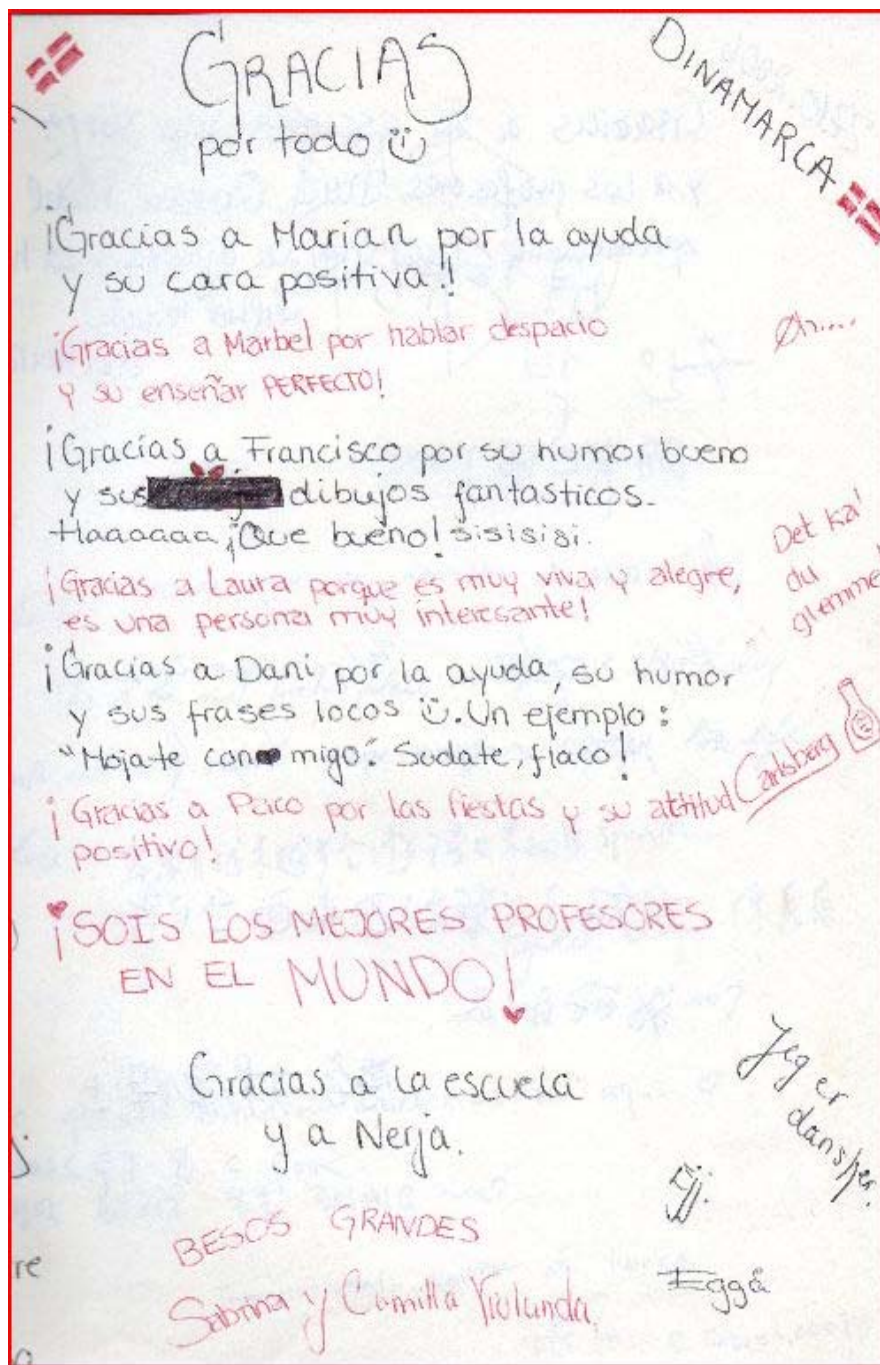 GRACIAS
por todo
DINAMARCA
¡Gracias a Marian por la ayuda
y su cara positiva!
¡Gracias a Marbel por hablar despacio
y su enseñar PERFECTO!
Øh....
¡Gracias a Francisco por su humor bueno
y sus dibujos fantasticos.
Haaaaaa ¡Que bueno! sisisisi.
Det ka'
du
glemme!
¡Gracias a Laura porque es muy viva y alegre,
es una persona muy interesante!
¡Gracias a Dani por la ayuda, su humor
y sus frases locos. Un ejemplo:
"Mojate con migo". Sudate, flaco!
Carlsberg
¡Gracias a Paco por las fiestas y su attitud
positivo!
¡SOIS LOS MEJORES PROFESORES
EN EL MUNDO!
Gracias a la escuela
y a Nerja.
Jeg er
dansker.
Ejj.
BESOS GRANDES
Sabrina y Camilla